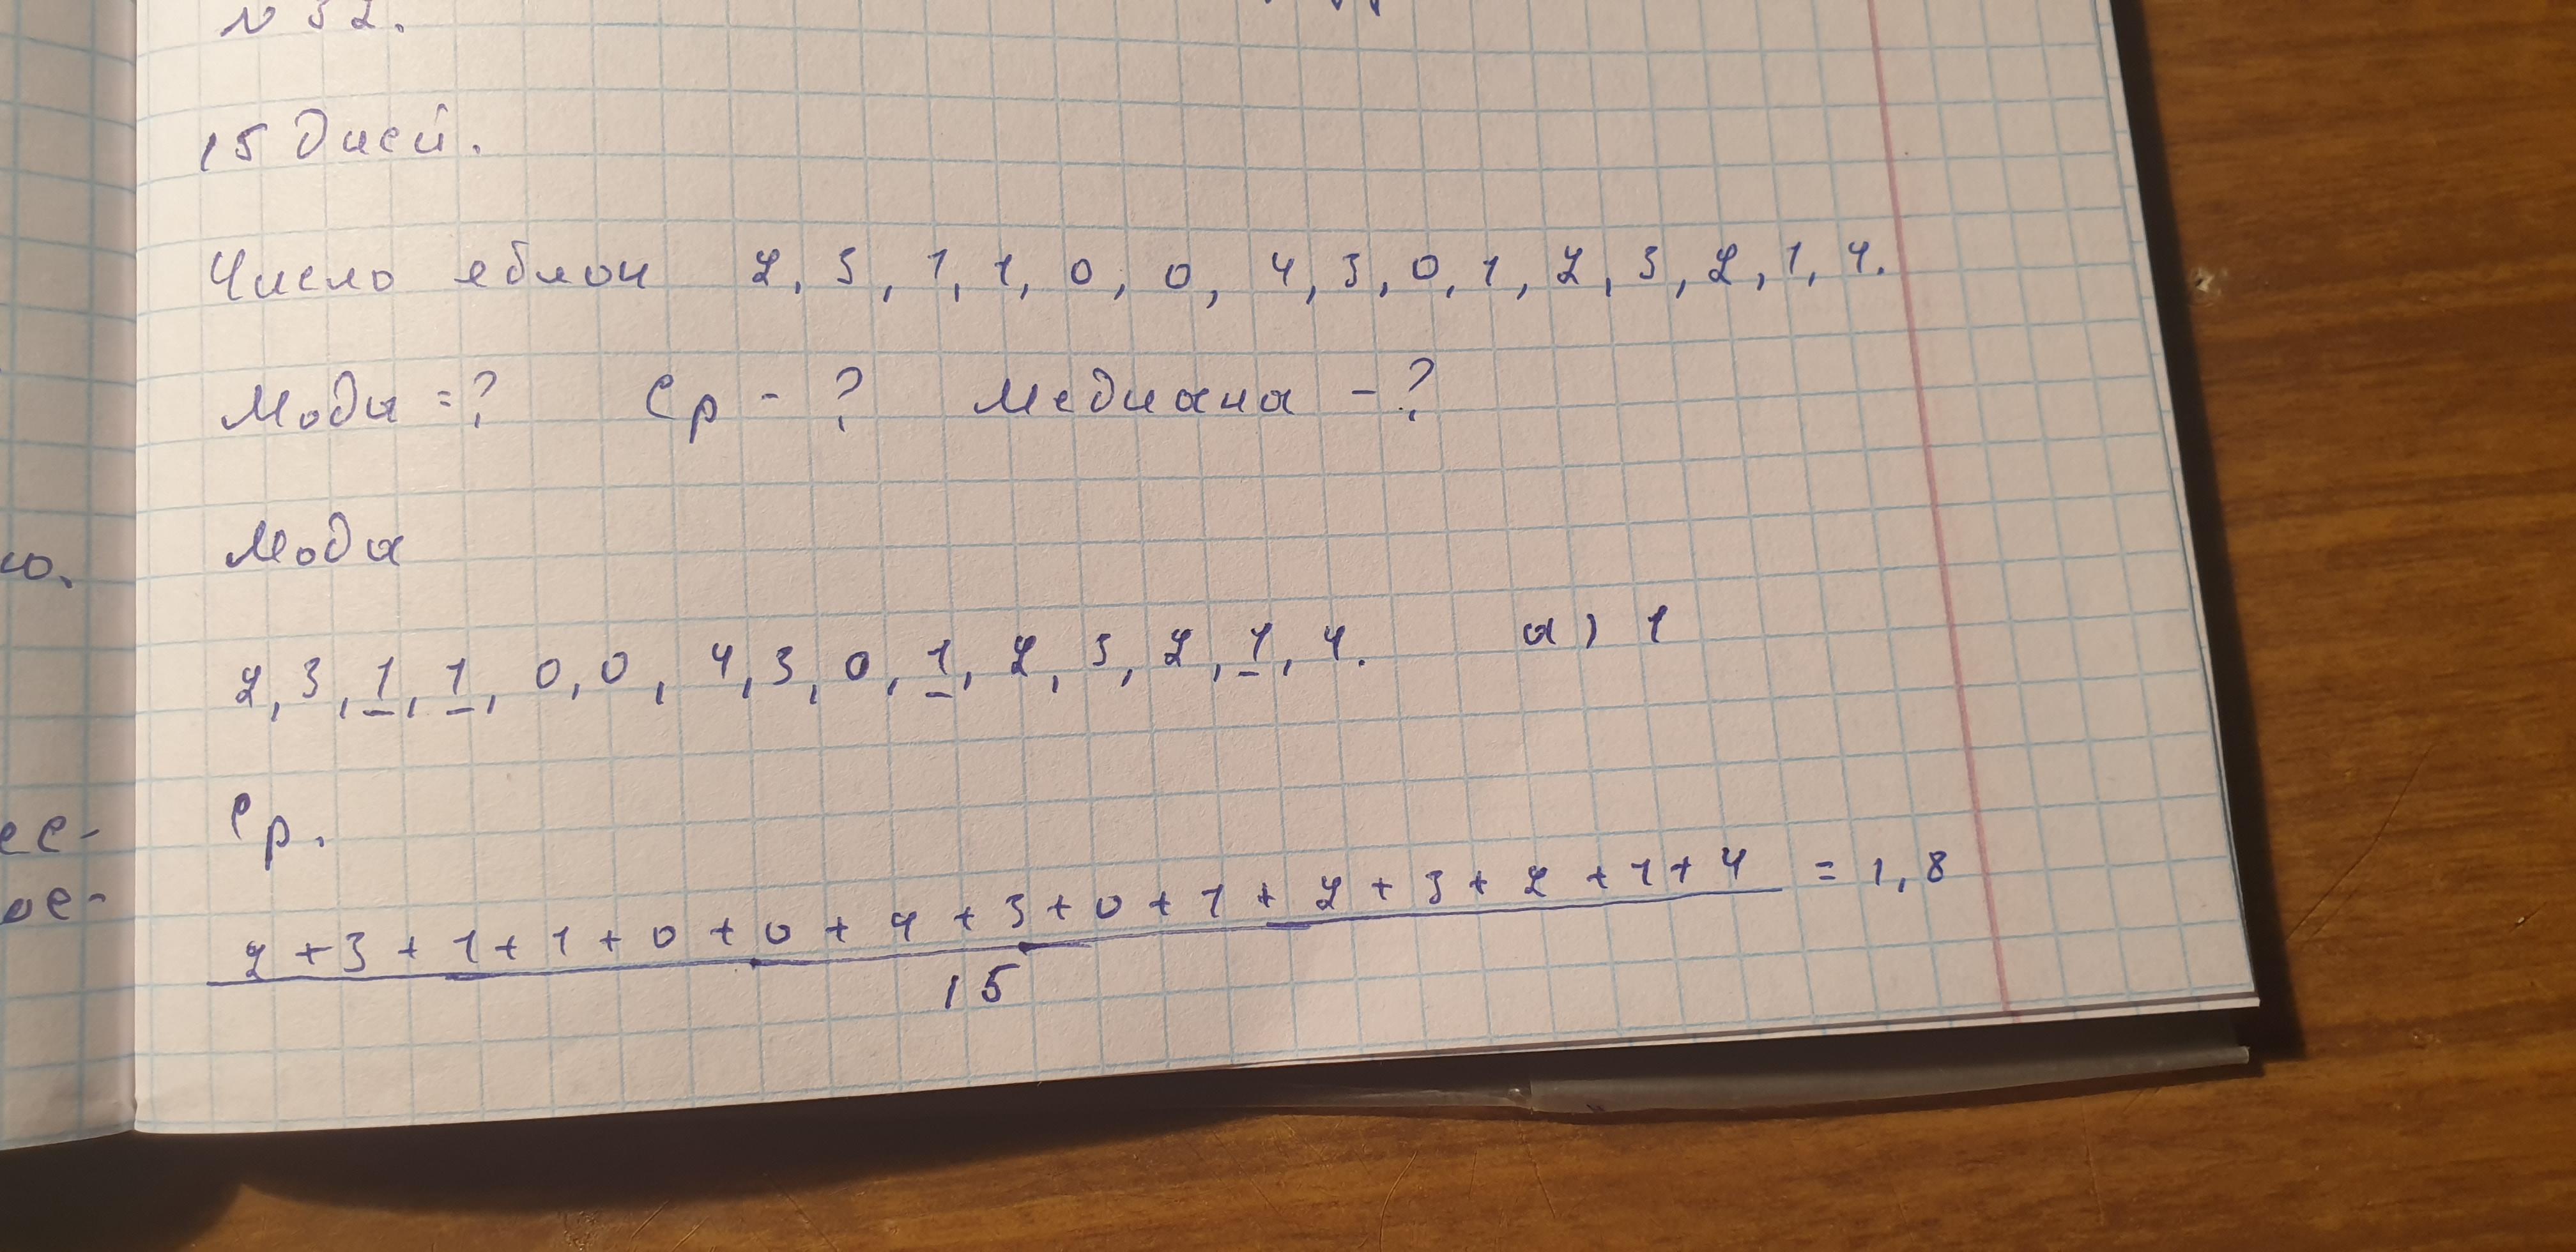 № 32.
15 дней.
Число яблок 2, 3, 1, 1, 0, 0, 4, 3, 0, 1, 2, 3, 2, 1, 4.
Мода = ? Ср - ? Медиана - ?
Мода
2, 3, 1, 1, 0, 0, 4, 3, 0, 1, 2, 3, 2, 1, 4. а) 1
Ср.
2 + 3 + 1 + 1 + 0 + 0 + 4 + 3 + 0 + 1 + 2 + 3 + 2 + 1 + 4 = 1,8
15
ю.
ее-
ое-